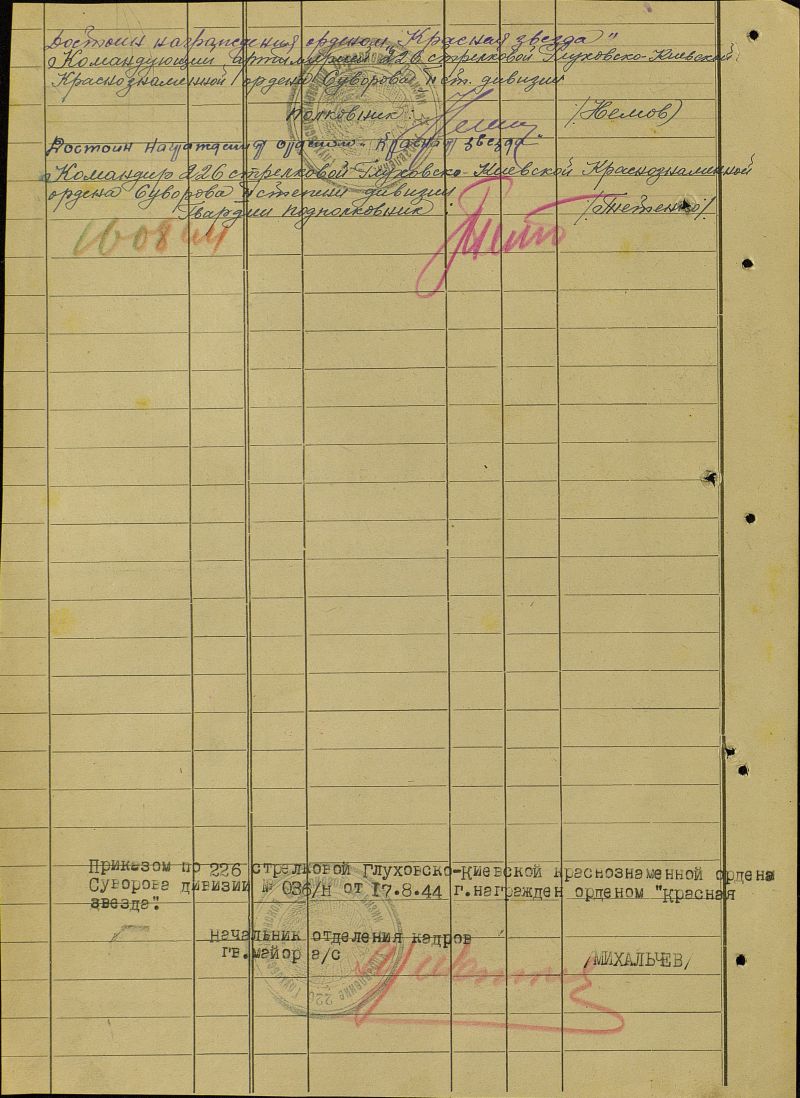 Достоин награждения орденом „Красная звезда"
Командующий артиллерией 226 стрелковой Глуховско-Киевской
Краснознаменной ордена Суворова II ст. дивизии
полковник: /Немов/
Достоин награждения орденом „Красная звезда"
Командир 226 стрелковой Глуховско-Киевской Краснознаменной
ордена Суворова II степени дивизии
Гвардии подполковник: /Тетенко/
16 08 44
Приказом по 226 стрелковой Глуховско-Киевской краснознаменной ордена
Суворова дивизии № 036/н от 17.8.44 г.награжден орденом "Красная
звезда".
Начальник отделения кадров
гв.майор а/с /МИХАЛЬЧЕВ/